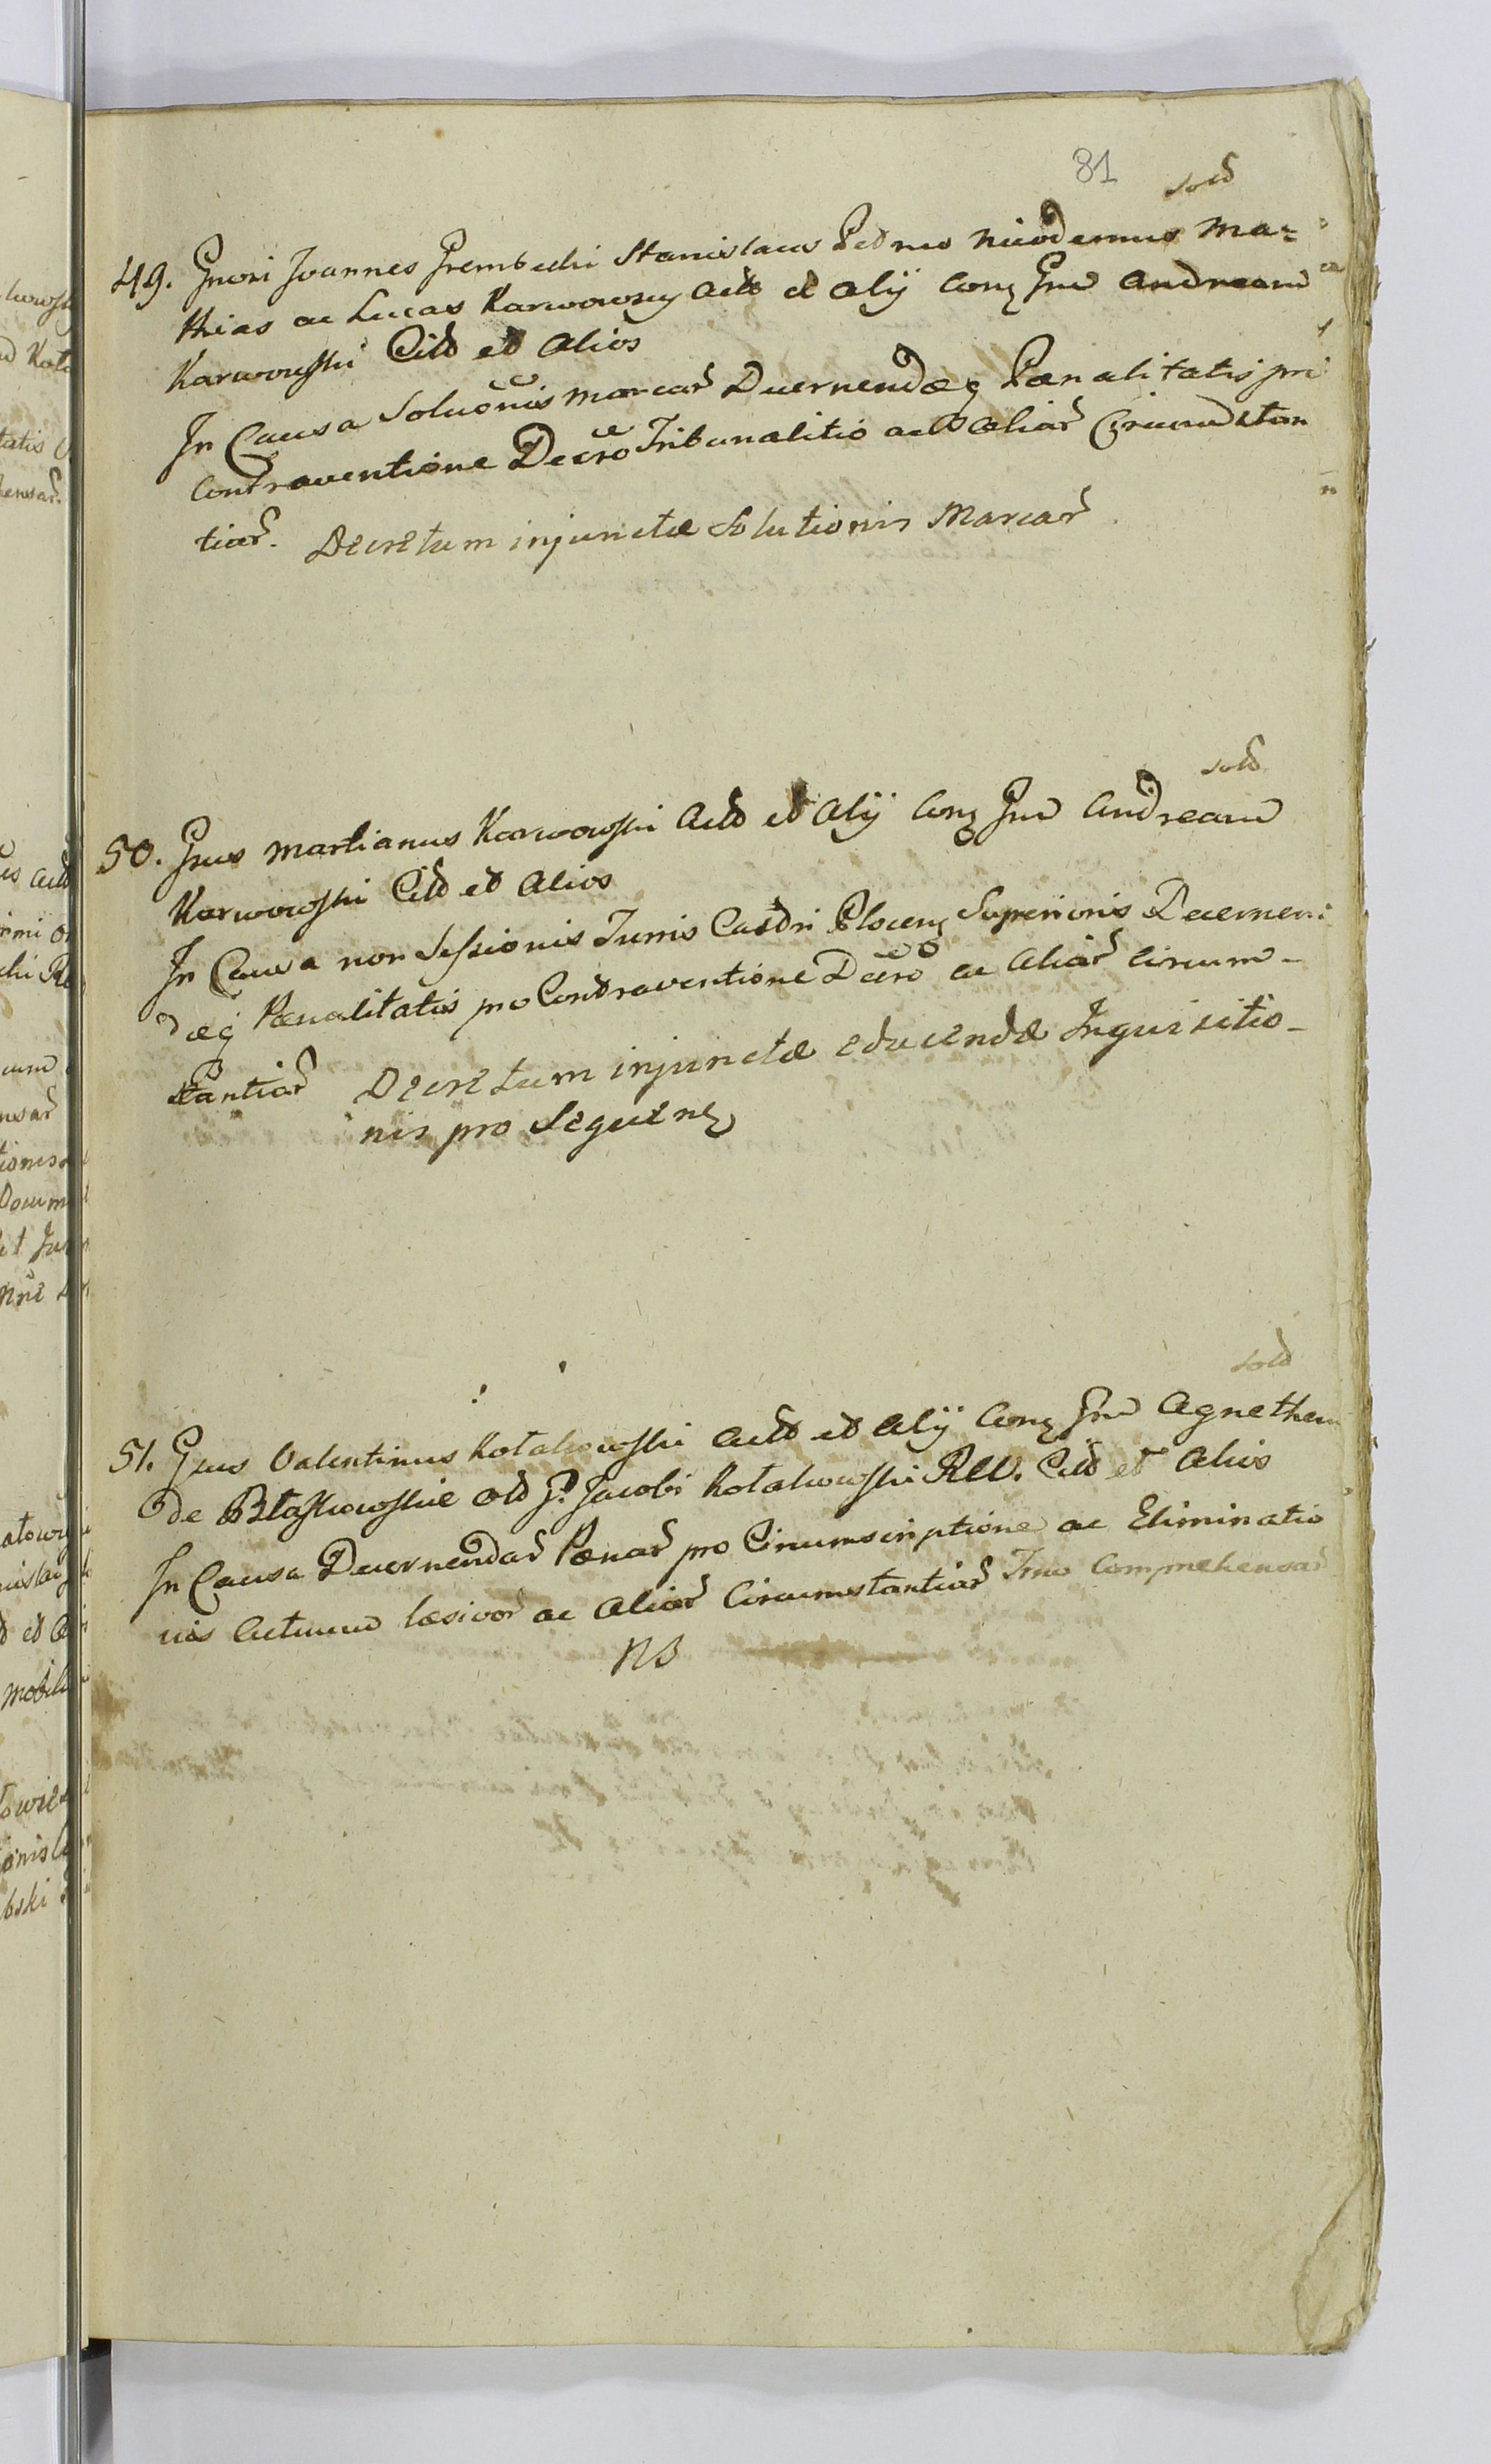 81
sold
49. Gnosi Joannes Grembecki Stanislaus Petrus Nicodemus Ma=
thias ac Lucas Karwowscy Acto et Alÿ Con Gnd Andream
Karwowski Citd et Alios
In Causa Soluõnis marcar Decernendæq Pœnalitatis pri
Contraventione Decro Tribunalitio ac Aliar Circumstan
tiar. Decretum injunctæ Solutionis Marcar
sold
50. Gnus Martianus Karwowski Actd et Alÿ Con Gnd Andream
Karwowski Citd et Alios
In Causa non Sessionis Turris Castri Plocen Superioris Decernen:
dæq Pœnalitatis pro Contraventione Decro ac Aliar Circum-
stantiar Decretum injunctæ educendæ Inquisitio-
nis pro Sequen
sold
51. Gnus Valentinus Kotakowski Actd et Alÿ Con Gnd Agnethem
de Blaszkowskie old G. Jacobi Kotakowski Rel. Citd et Alios
In Causa Decernendar Pœnar pro Circumscriptione ac Eliminatio
nis Actuum læsivor ac Aliar Circumstantiar Tmo Comprehensar
NB